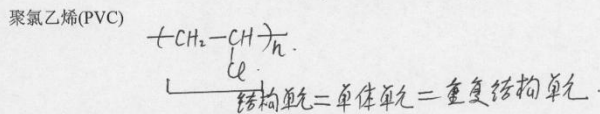 聚氯乙烯(PVC)
-(CH₂-CH)-n.
Cl.
结构单元=单体单元=重复结构单元.